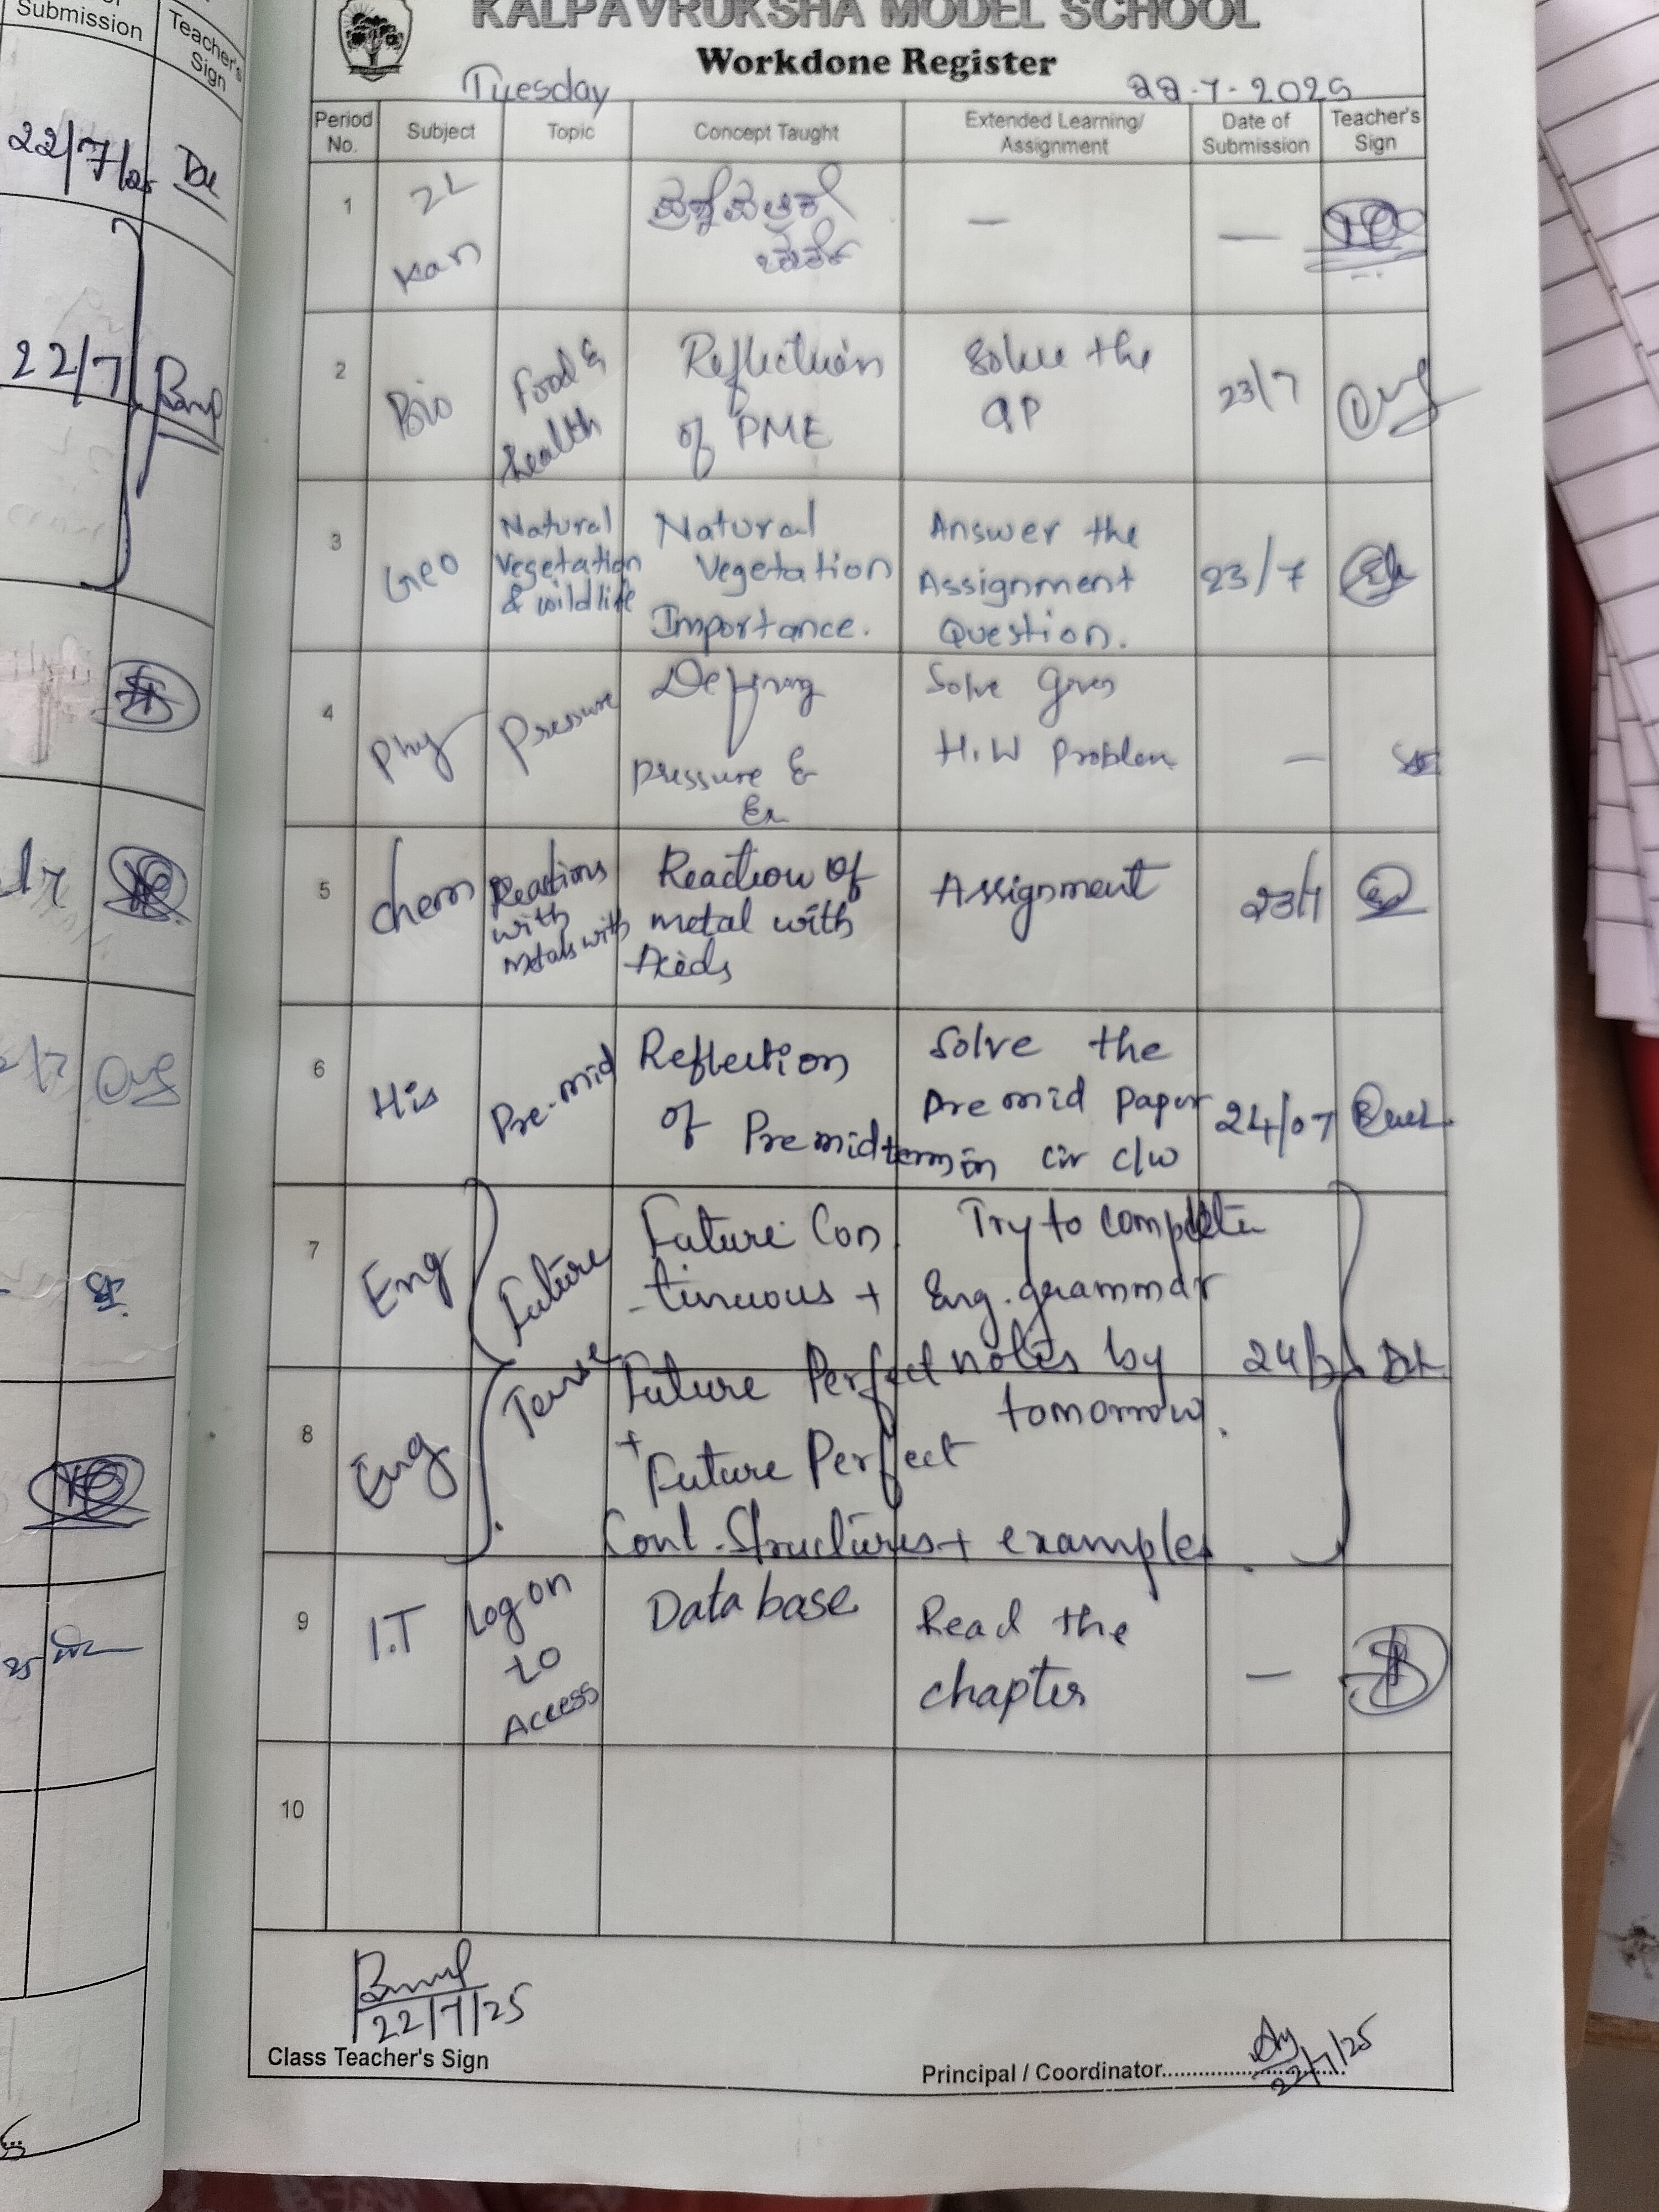 Submission
Teacher's
Sign
22/7/25
22/7
KALPAVRUKSHA MODEL SCHOOL
Workdone Register
Tuesday
22-7-2025
Period No. Subject Topic Concept Taught Extended Learning/ Assignment Date of Submission Teacher's Sign
1
2L
Kan
—
—
2
Bio
Food &
health
Reflection
of PME
Solve the
QP
23/7
3
Geo
Natural
Vegetation
& wildlife
Natural
Vegetation
Importance.
Answer the
Assignment
Question.
23/7
4
Phy
Pressure
Defining
pressure &
Ex
Solve given
H.W Problem
—
5
chem
Reactions
with
metals with
Reaction Of
metal with
Acids
Assignment
23/7
6
His
Pre-mid
Reflection
of Pre midterm
Solve the
Pre mid paper
in c/w
24/07
7
Eng
Future
Tense
Future Con
-tinuous +
Future Perfect
+
Future Perfect
Cont. Structures + examples.
Try to complete
Eng. grammar
notes by
tomorrow.
8
Eng
9
I.T
Log on
to
Access
Database
Read the
chapter
—
10
22/7/25
Class Teacher's Sign
Principal / Coordinator
22/7/25